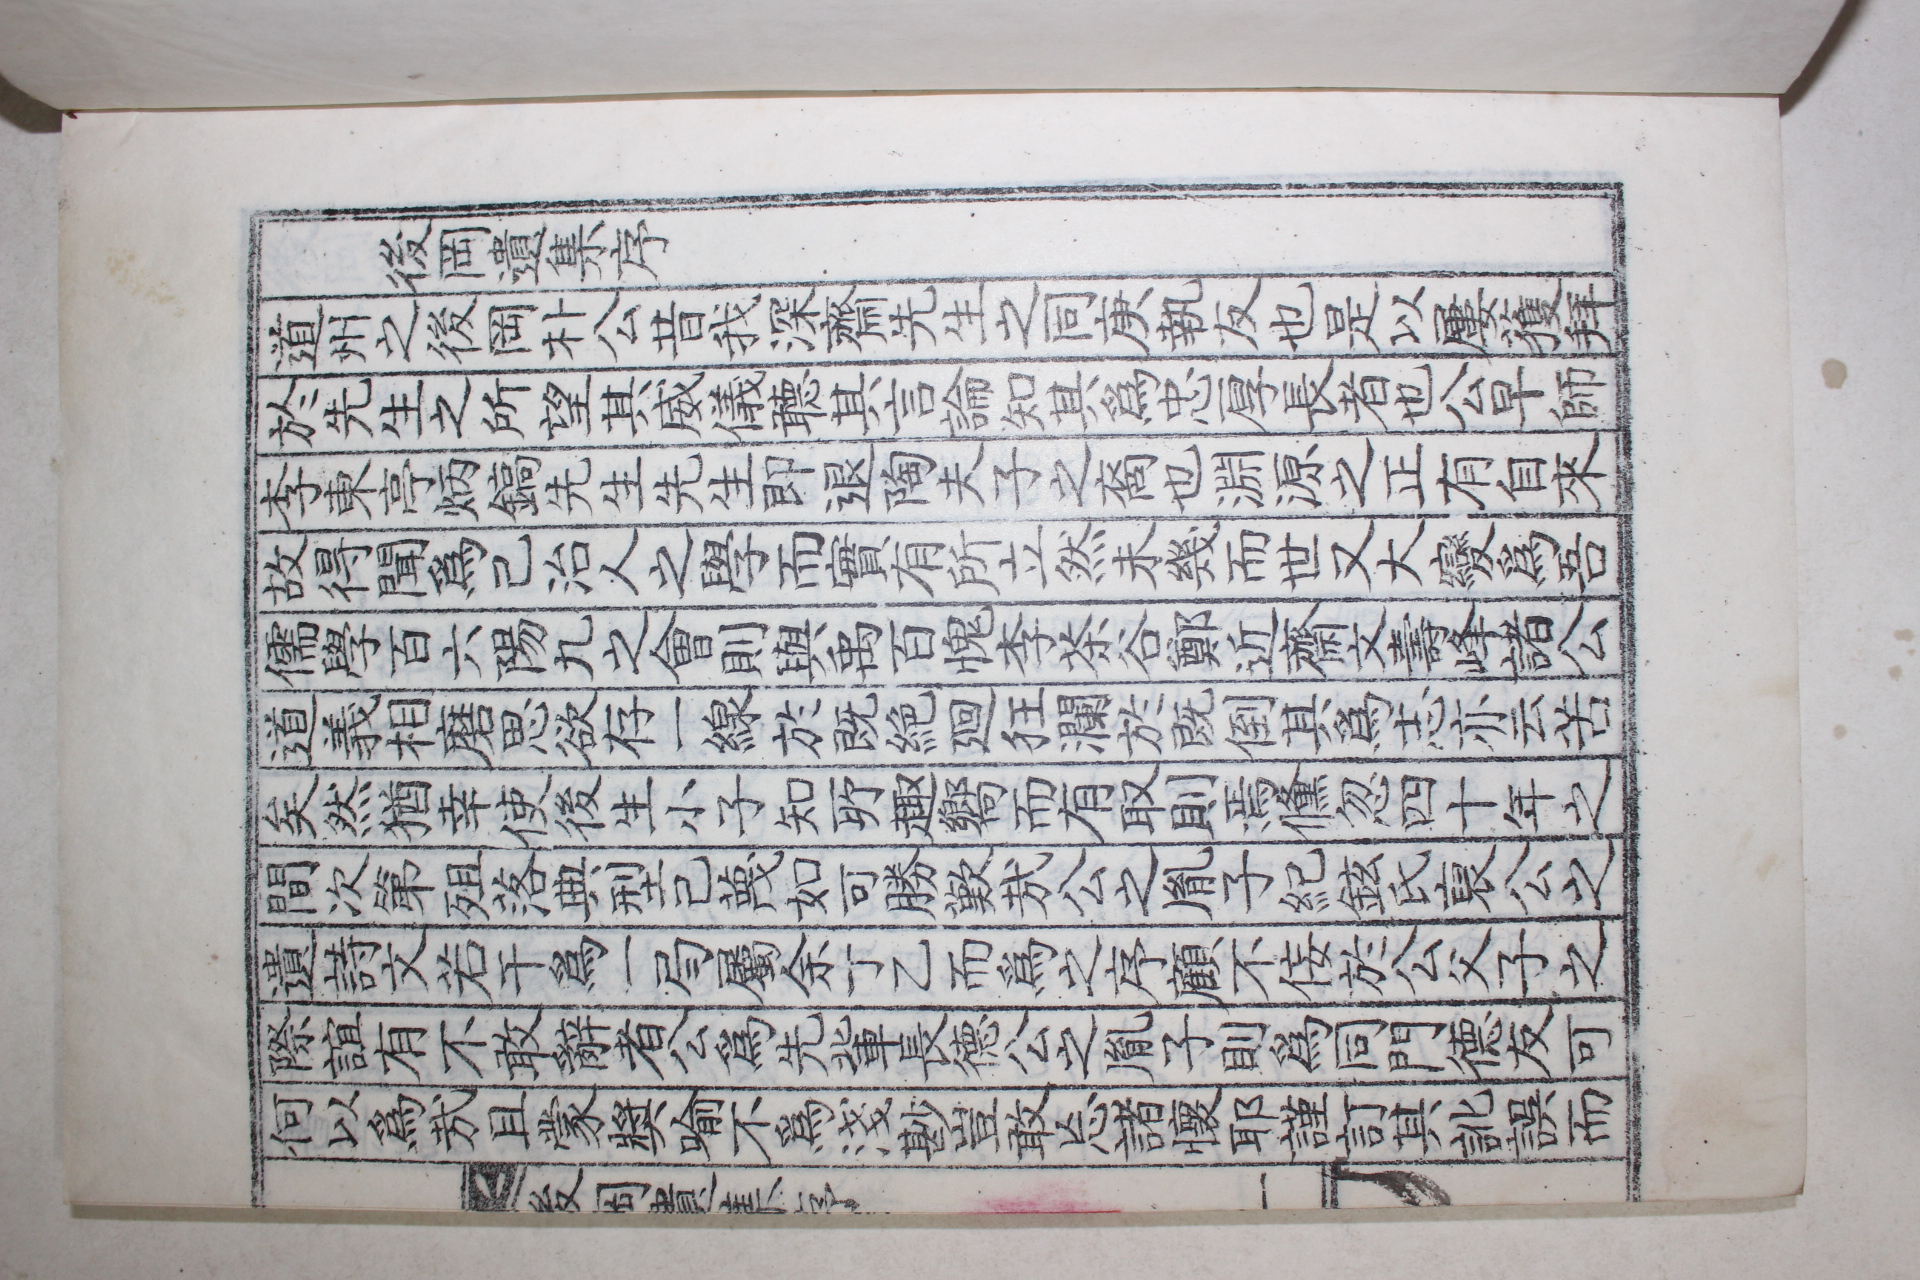 後岡遺集序
道州之後岡朴公昔我深齋先生之同庚執友也是以屢獲拜
於先生之所望其威儀聽其言論知其爲忠厚長者也公早師
李東亭炳鎬先生先生即退陶夫子之裔也淵源之正有自來
故得聞爲己治人之學而實有所立然未幾而世又大變爲吾
儒學百六陽九之會則與禹百愧李茶谷鄭近齋文壽峰諸公
道義相磨思欲存一線於既絶迴狂瀾於既倒其爲志亦云苦
矣然猶幸使後生小子知所趣嚮而有取則焉儵忽四十年之
間次第殂落典型已蔑如可勝歎哉公之胤子紀鉉氏裒公之
遺詩文若干爲一局屬余丁乙而爲之序顧不佞於公父子之
際誼有不敢辭者公爲先輩長德公之胤子則爲同門德友可
何以爲哉且蒙獎喻不爲淺尠豈敢忘諸懷耶謹訂其訛誤而
後岡遺集序
一